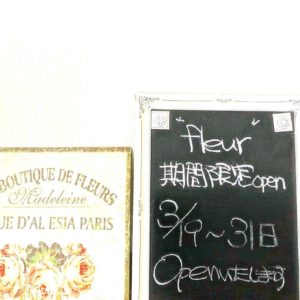 BOUTIQUE DE FLEURS
Madeleine
UE D'ALESIA PARIS
"fleur"
期間限定open
3/19～31日
Openいたします